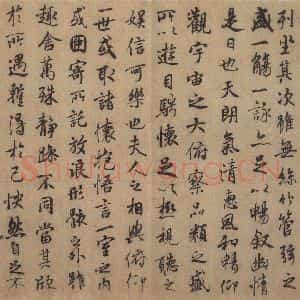 列坐其次雖無絲竹管弦之
盛一觴一詠亦足以暢敘幽情
是日也天朗氣清惠風和暢仰
觀宇宙之大俯察品類之盛
所以遊目騁懷足以極視聽之
娛信可樂也夫人之相與俯仰
一世或取諸懷抱悟言一室之內
或因寄所託放浪形骸之外雖
趣舍萬殊靜躁不同當其欣
於所遇暫得於己快然自足不